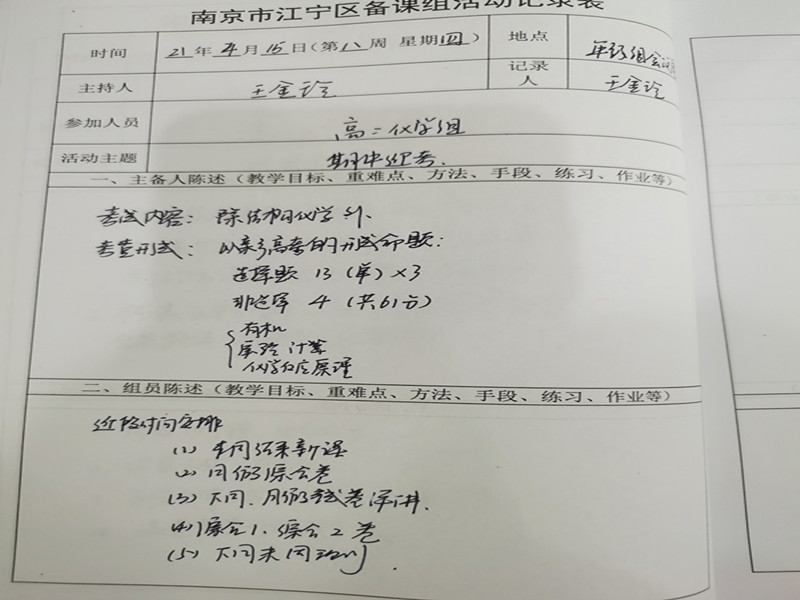 南京市江宁区备课组活动记录表
时间 21年4月15日(第八周 星期四) 地点 年级组会议
主持人 王金 记录人 王金
参加人员 高二化学组
活动主题 期中迎考.
一、主备人陈述(教学目标、重难点、方法、手段、练习、作业等)
考试内容: 除结构化学外.
考查形式: 以新高考的形式命题:
选择题 13 (单) ×3
非选择 4 (共61分)
有机
实验 计算
化学反应原理
二、组员陈述(教学目标、重难点、方法、手段、练习、作业等)
近阶时间安排
(1) 本周结束新课
(2) 周综合卷
(3) 下周. 卷评讲.
(4) 综合1. 综合2卷
(5) 下周末